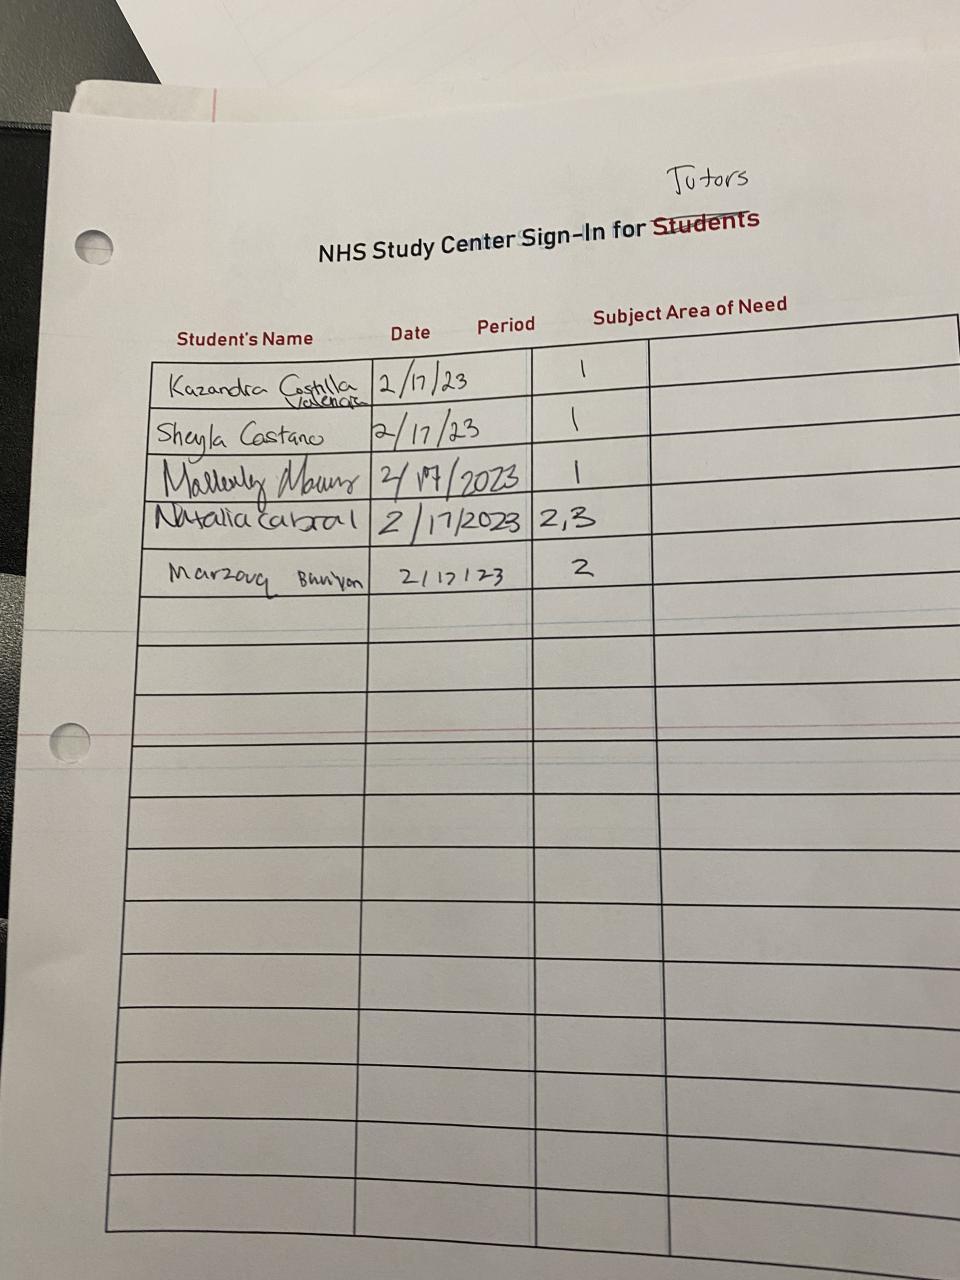 Tutors
NHS Study Center Sign-In for Students
Student's Name Date Period Subject Area of Need
Kazandra Costilla Valencia 2/17/23 1
Sheyla Castano 2/17/23 1
2/17/2023 1
Natalia Cabral 2/17/2023 2,3
Marzouq 2/17/23 2